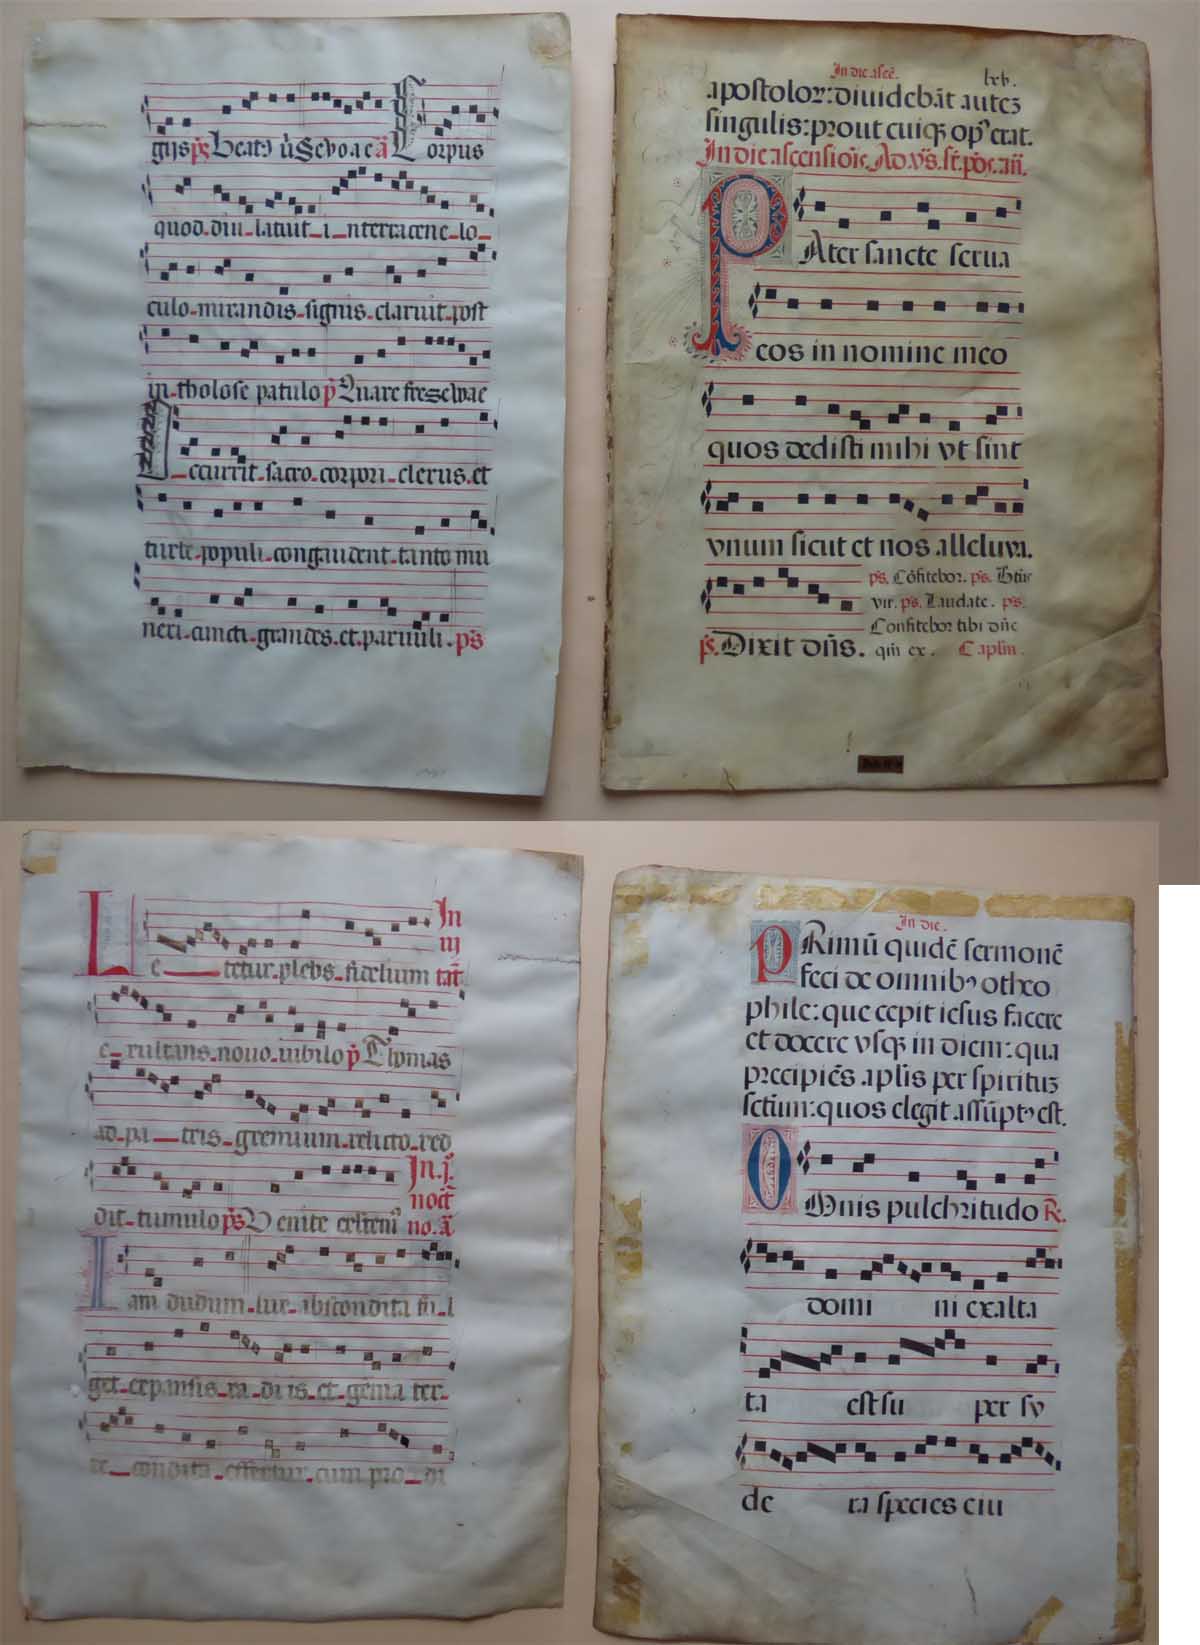 giis ps Beat9 vir Sevoae a Corpus
quod_diu_latuit_i_nterracene_lo_
culo_mirandis_signis_claruit_post
in_tholose patulo p Quare fre
_ccurrit_sacro_corpori_clerus_et
turbe_populi_congaudent_tanto mu
neri_cuncti_grandes_et_paruuli. ps
In die ascē. lxv.
apostolor: diuidebāt autez
singulis: prout cuiqz op9 erat.
In die ascensiōis. Ad. vs. st. pōs. an.
PAter sancte serua
eos in nomine meo
quos dedisti mihi vt sint
vnum sicut et nos alleluya.
ps. Cōfitebor. ps. Btūs
vir. ps. Laudate. ps.
Confitebor tibi dñe
ps. Dixit dñs. qm̄ ex. Caplm.
Le___tetur_plebs_fidelium
In
iij
e_xultans_nouo_iubilo p Thomas
ad_pa__tris_gremium_relicto_red
dit_tumulo ps Venite
In. j.
noct
no. ā
Iam dudum_lux_abscondita
get_expansis_ra_di is_et_gēma ter_
re__condita_effertur_cum pro_di
In die.
PRimū quidē sermonē
feci de omnib9 o theo
phile: que cepit iesus facere
et docere vsqz in diem: qua
precipiēs aplis per spirituz
sctūm: quos elegit assūpt9 est.
OMnis pulchritudo R.
domi ni exalta
ta est su per sy
de ra species eiu